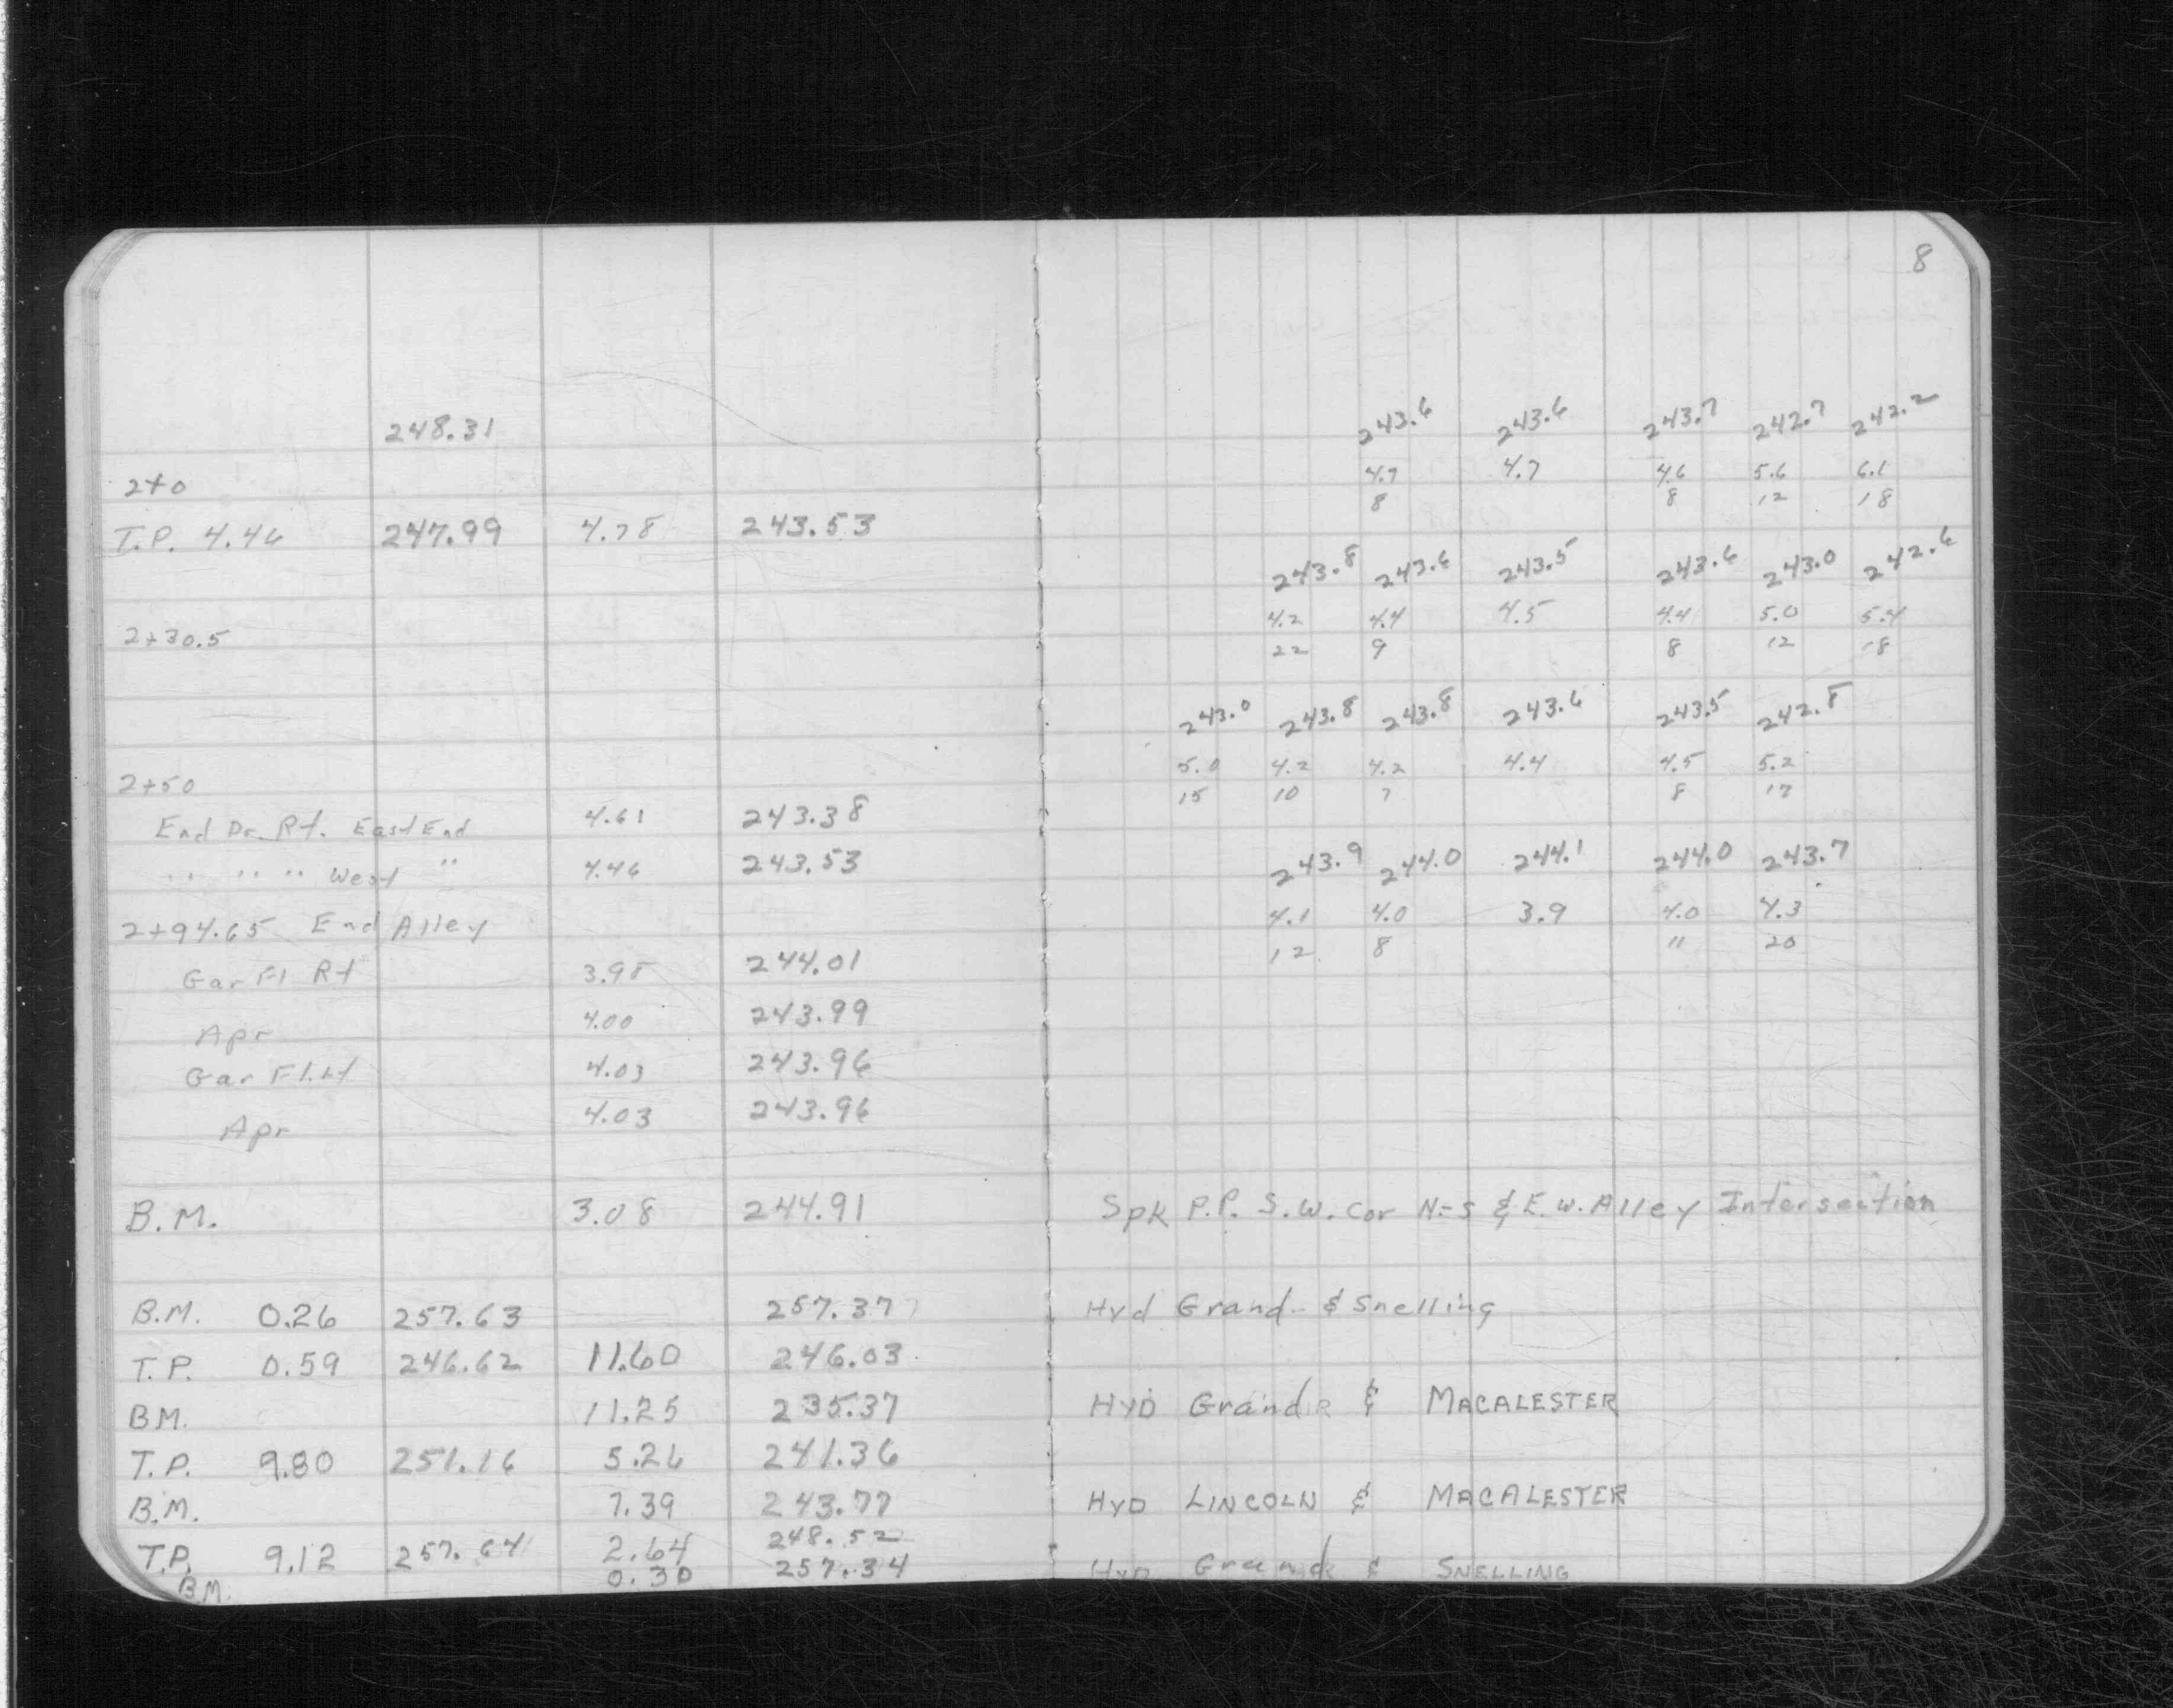 8
248.31 243.6 243.6 243.7 242.7 242.2
2+0 4.7 4.7 4.6 5.6 6.1
8 8 12 18
T.P. 4.46 247.99 4.78 243.53
243.8 243.6 243.5 243.6 243.0 242.6
4.2 4.4 4.5 4.4 5.0 5.4
2+30.5 22 9 8 12 18
243.0 243.8 243.8 243.6 243.5 242.8
5.0 4.2 4.2 4.4 4.5 5.2
2+50 15 10 7 8 17
End Dr. Rt. East End 4.61 243.38
" " " West " 4.46 243.53 243.9 244.0 244.1 244.0 243.7
2+94.65 End Alley 4.1 4.0 3.9 4.0 4.3
12 8 11 20
Gar Fl Rt 3.98 244.01
Apr 4.00 243.99
Gar Fl. Lt 4.03 243.96
Apr 4.03 243.96
B.M. 3.08 244.91 Spk P.P. S.W. Cor N-S & E.W. Alley Intersection
B.M. 0.26 257.63 257.37 Hyd Grand & Snelling
T.P. 0.59 246.62 11.60 246.03
BM. 11.25 235.37 HYD Grand & MACALESTER
T.P. 9.80 251.16 5.26 241.36
B.M. 7.39 243.77 HYD LINCOLN & MACALESTER
T.P. 9.12 257.64 2.64 248.52
B.M. 0.30 257.34 HYD Grand & SNELLING